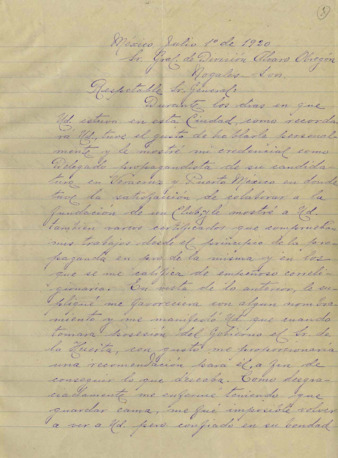 5
México Julio 1º de 1920
Sr. Gral. de División Álvaro Obregón
Nogales - Son.
Respetable Sr. General:
Durante los días en que
Ud. estuvo en esta Ciudad, como recorda-
rá Ud, tuve el gusto de hablarle personal-
mente y le mostré mi credencial como
Delegado propagandista de su candida-
tura en Veracruz y Puerto México en donde
tuve la satisfacción de colaborar a la
fundación de un Club, y le mostré a Ud.
también varios certificados que comprueban
mis trabajos desde el principio de la pro-
paganda en pro de la misma y en los
que se me califica de empeñoso correli-
gionario. En vista de lo anterior, le su-
pliqué me favoreciera con algun nombra-
miento y me manifestó Ud. que cuando
tomara posesión del Gobierno el Sr. de
la Huerta, con gusto me proporcionaría
una recomendación para él, a fin de
conseguir lo que deseaba. Como desgra-
ciadamente me enfermé teniendo que
guardar cama, me fué imposible volver
a ver a Ud. pero confiado en su bondad